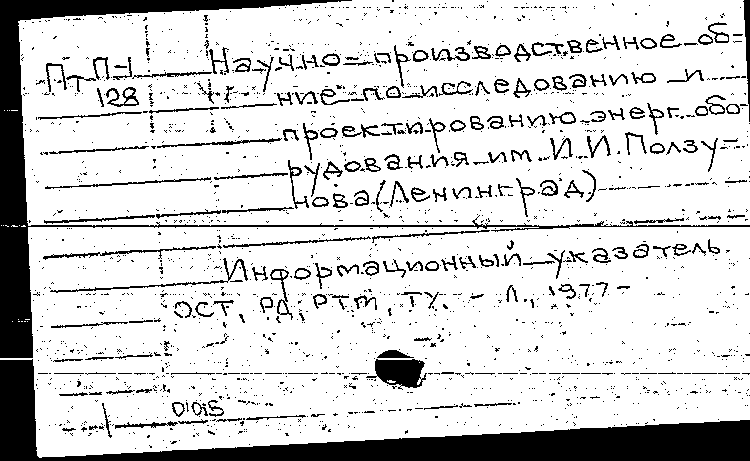 Пт П-1 Научно-производственное об-
128 ние по исследованию и
проектированию энерг. обо-
рудования им. И.И. Ползу-
нова (Ленинград)
Информационный указатель.
ОСТ, РД, РТМ, ТУ. - Л., 1977-